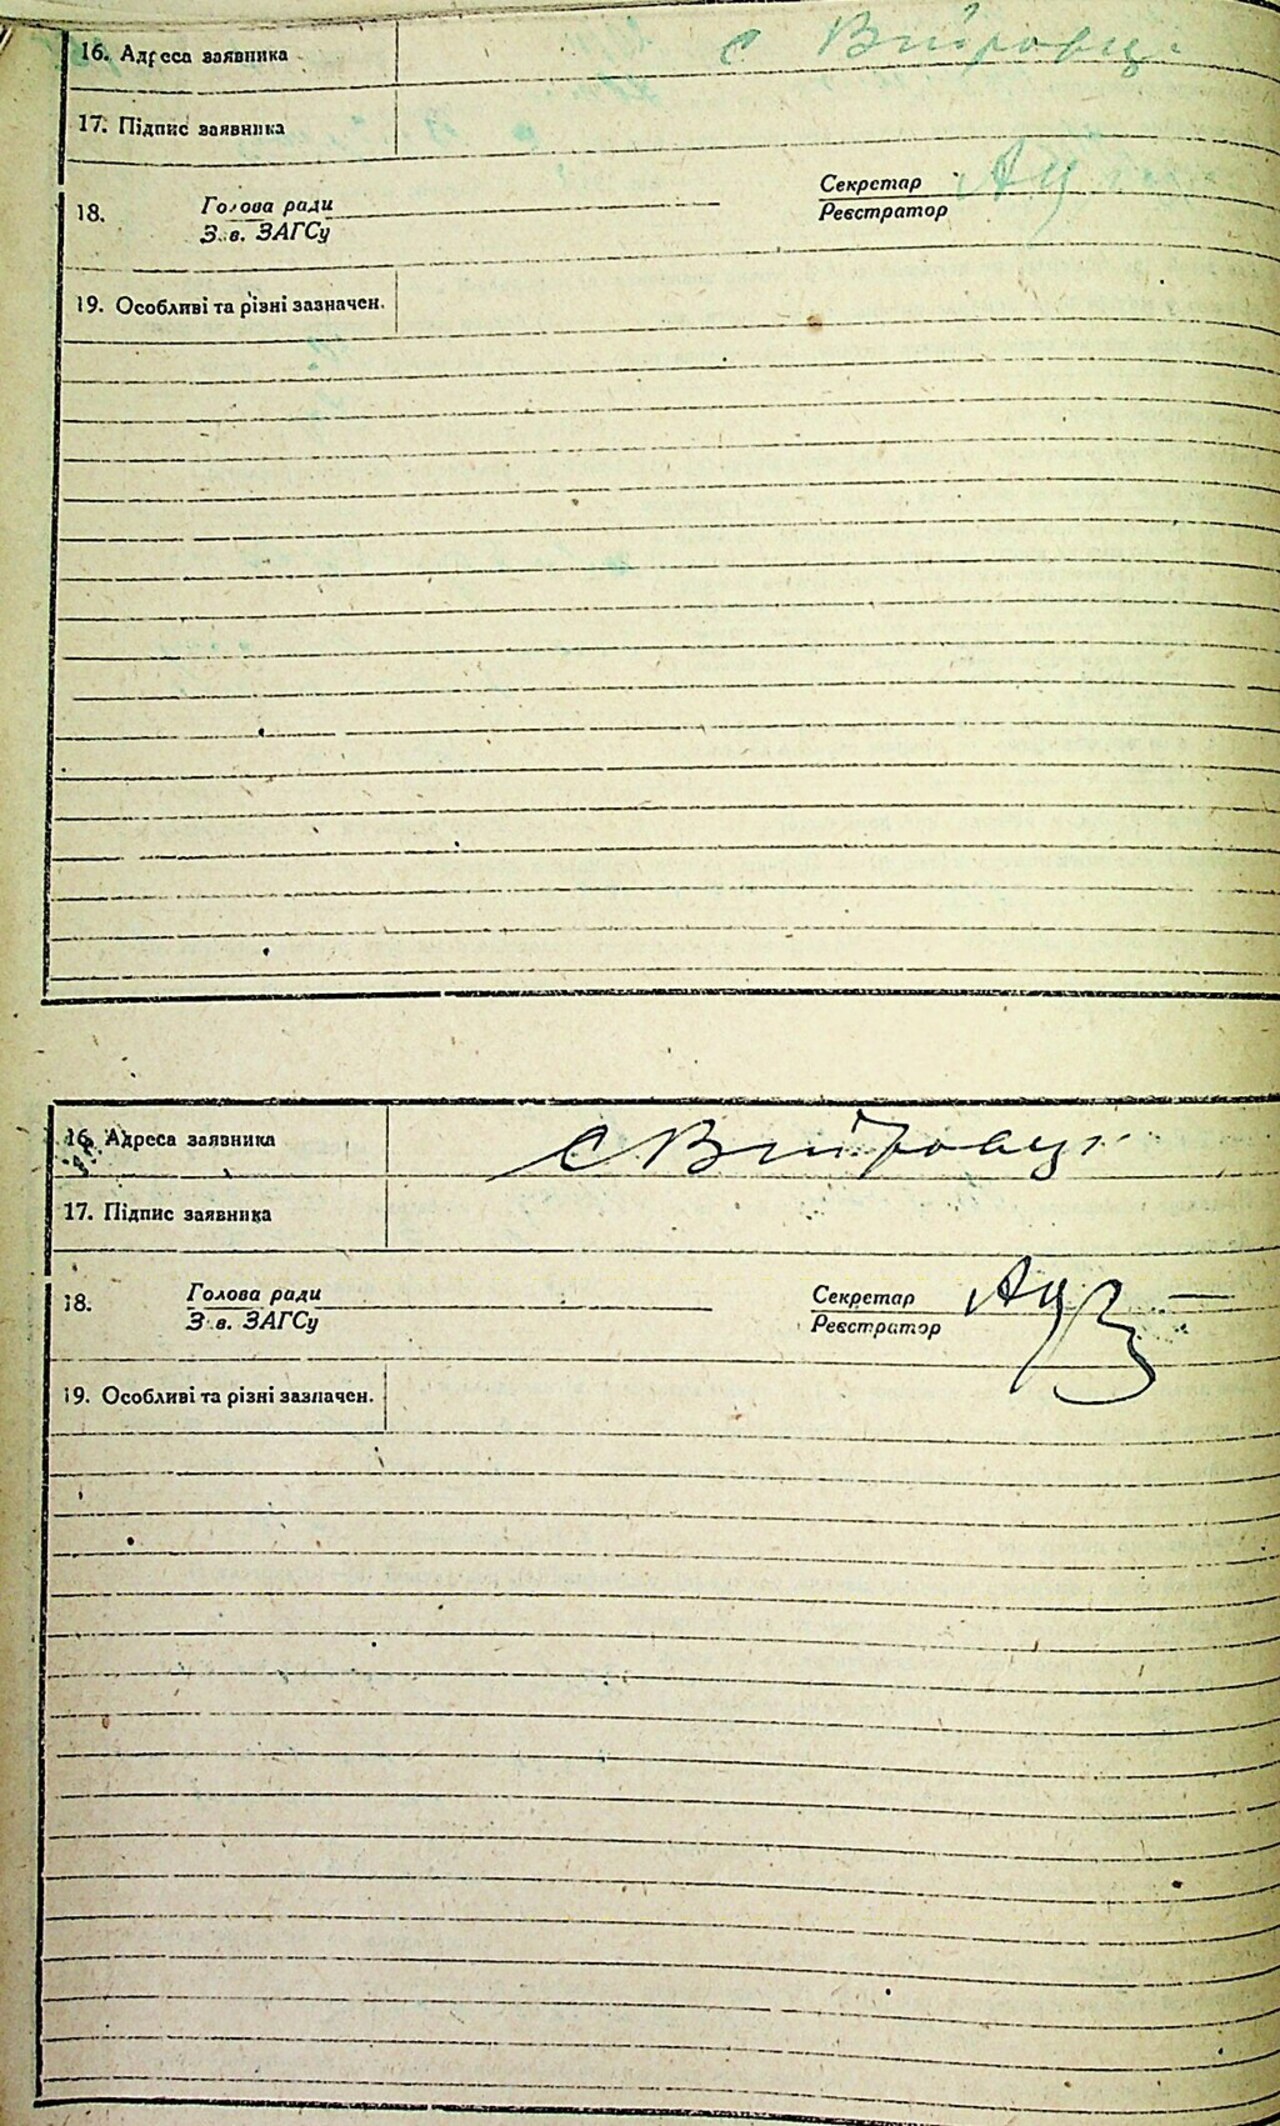 16. Адреса заявника с Вийровці
17. Підпис заявника
18. Голова ради Секретар
З. в. ЗАГСу Реєстратор
19. Особливі та різні зазначен.
16. Адреса заявника с Вийровці
17. Підпис заявника
18. Голова ради Секретар
З. в. ЗАГСу Реєстратор
19. Особливі та різні зазначен.